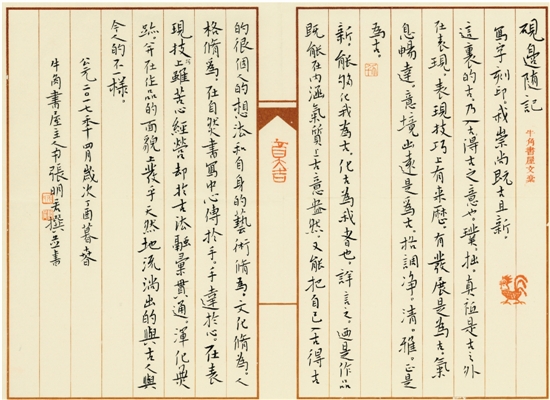 牛角書屋文稾
硯邊随记
寫字刻印,我崇尚既古且新。
這裏的古乃一古得古之意也。璞、拙、真誼是古之外
在表現。表現技巧上有來歷,有發展是為古。氣
息暢達,意境出遠是為古。格調净、清、雅,正是
為古。
新,能夠化我為古,化古為我者也。詳言之,迺是作品
既能在内涵氣質上古意盎然,又能把自己一古得古
的很個人的想法和自身的藝術脩為,文化脩為,人
格脩為,在自然書寫中心傳於手,手達於心。在表
現技上雖苦心經營却於古法融彙貫通,渾化無
跡,并在作品的面貌上發乎天然地流淌出的與古人與
今人的不一樣。
公元二〇一七年 四月歲次丁酉暮春
牛角書屋主人 張明 撰並書